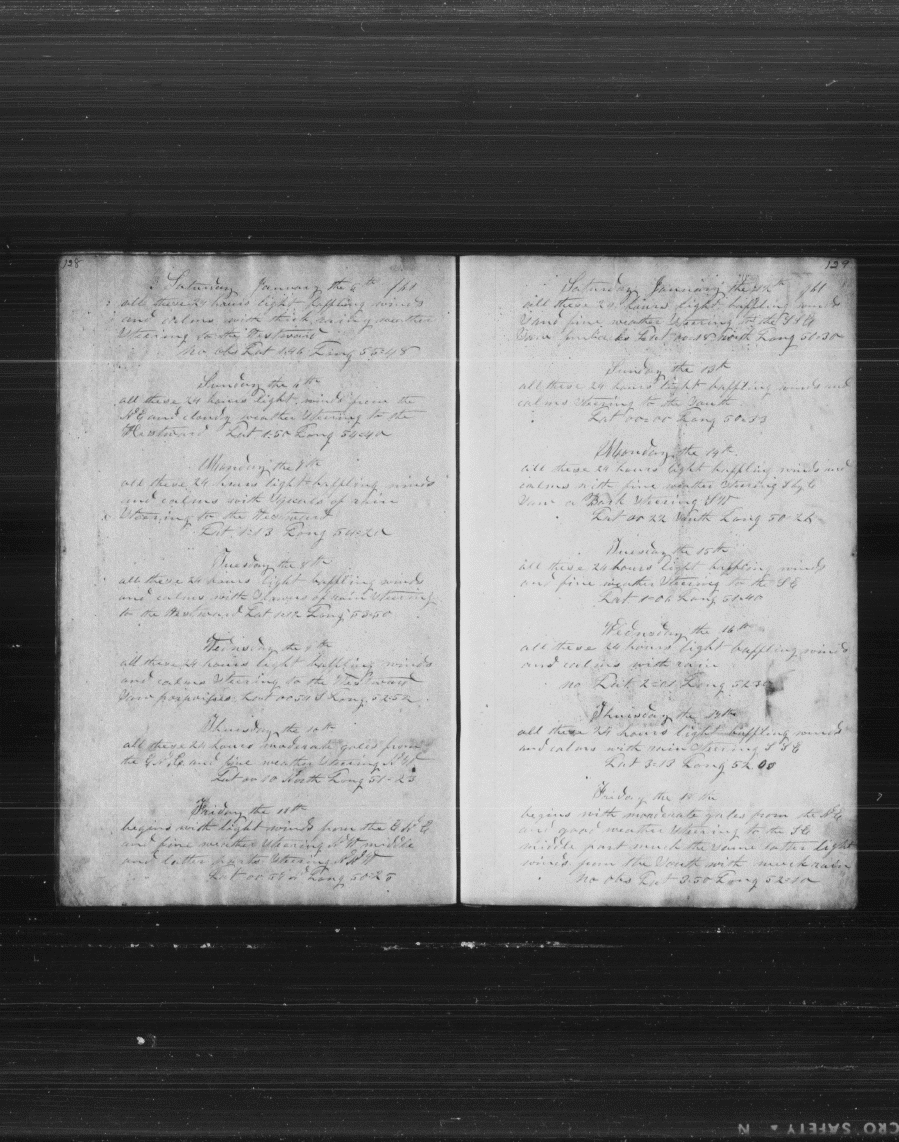 128
Saturday January the 5th 1861
all these 24 hours light baffling winds
and calms with thick smoky weather
Steering to the Westward
no obs Lat 1:46 Long 55:48
Sunday the 6th
all these 24 hours light winds from the
NE and cloudy weather Steering to the
Westward Lat 1:50 Long 54:40
Monday the 7th
all these 24 hours light baffling winds
and calms with Squals of rain
Steering to the Westward
Lat 1:13 Long 54:20
Tuesday the 8th
all these 24 hours light baffling winds
and calms with Showers of rain Steering
to the Westward Lat 1:12 Long 53:50
Wednesday the 9th
all these 24 hours light baffling winds
and calms Steering to the Westward
Saw porpoises Lat 00:54 S Long 52:52
Thursday the 10th
all these 24 hours moderate gales from
the and fine weather Steering N W
Lat 00 10 North Long 51-23
Friday the 11th
begins with light winds from the E N E
and fine weather Steering N W middle
and latter parts Steering
Lat 00 54 N Long 50 25
129
Saturday January the 12th 1861
all these 24 hours light baffling winds
and fine weather Steering to the
Saw Lat 00:18 North Long 50:30
Sunday the 13th
all these 24 hours light baffling winds and
calms Steering to the South
Lat 00:00 Long 50:33
Monday the 14th
all these 24 hours light baffling winds and
calms with fine weather Steering
Saw a Bark Steering S W
Lat 00 22 South Long 50:26
Tuesday the 15th
all these 24 hours light baffling winds
and fine weather Steering to the S E
Lat 1:06 Long 50:40
Wednesday the 16th
all these 24 hours light baffling winds
and calms with rain
no Lat 2:01 Long
Thursday the 17th
all these 24 hours light baffling winds
and calms with rain Steering S S E
Lat 3:13 Long 52.00
Friday the 18th
begins with moderate gales from the N E
and good weather Steering to the S E
middle part much the Same latter light
winds from the South with much rain
no obs Lat 3:50 Long 52:10
CRO SAFETY ▲ N